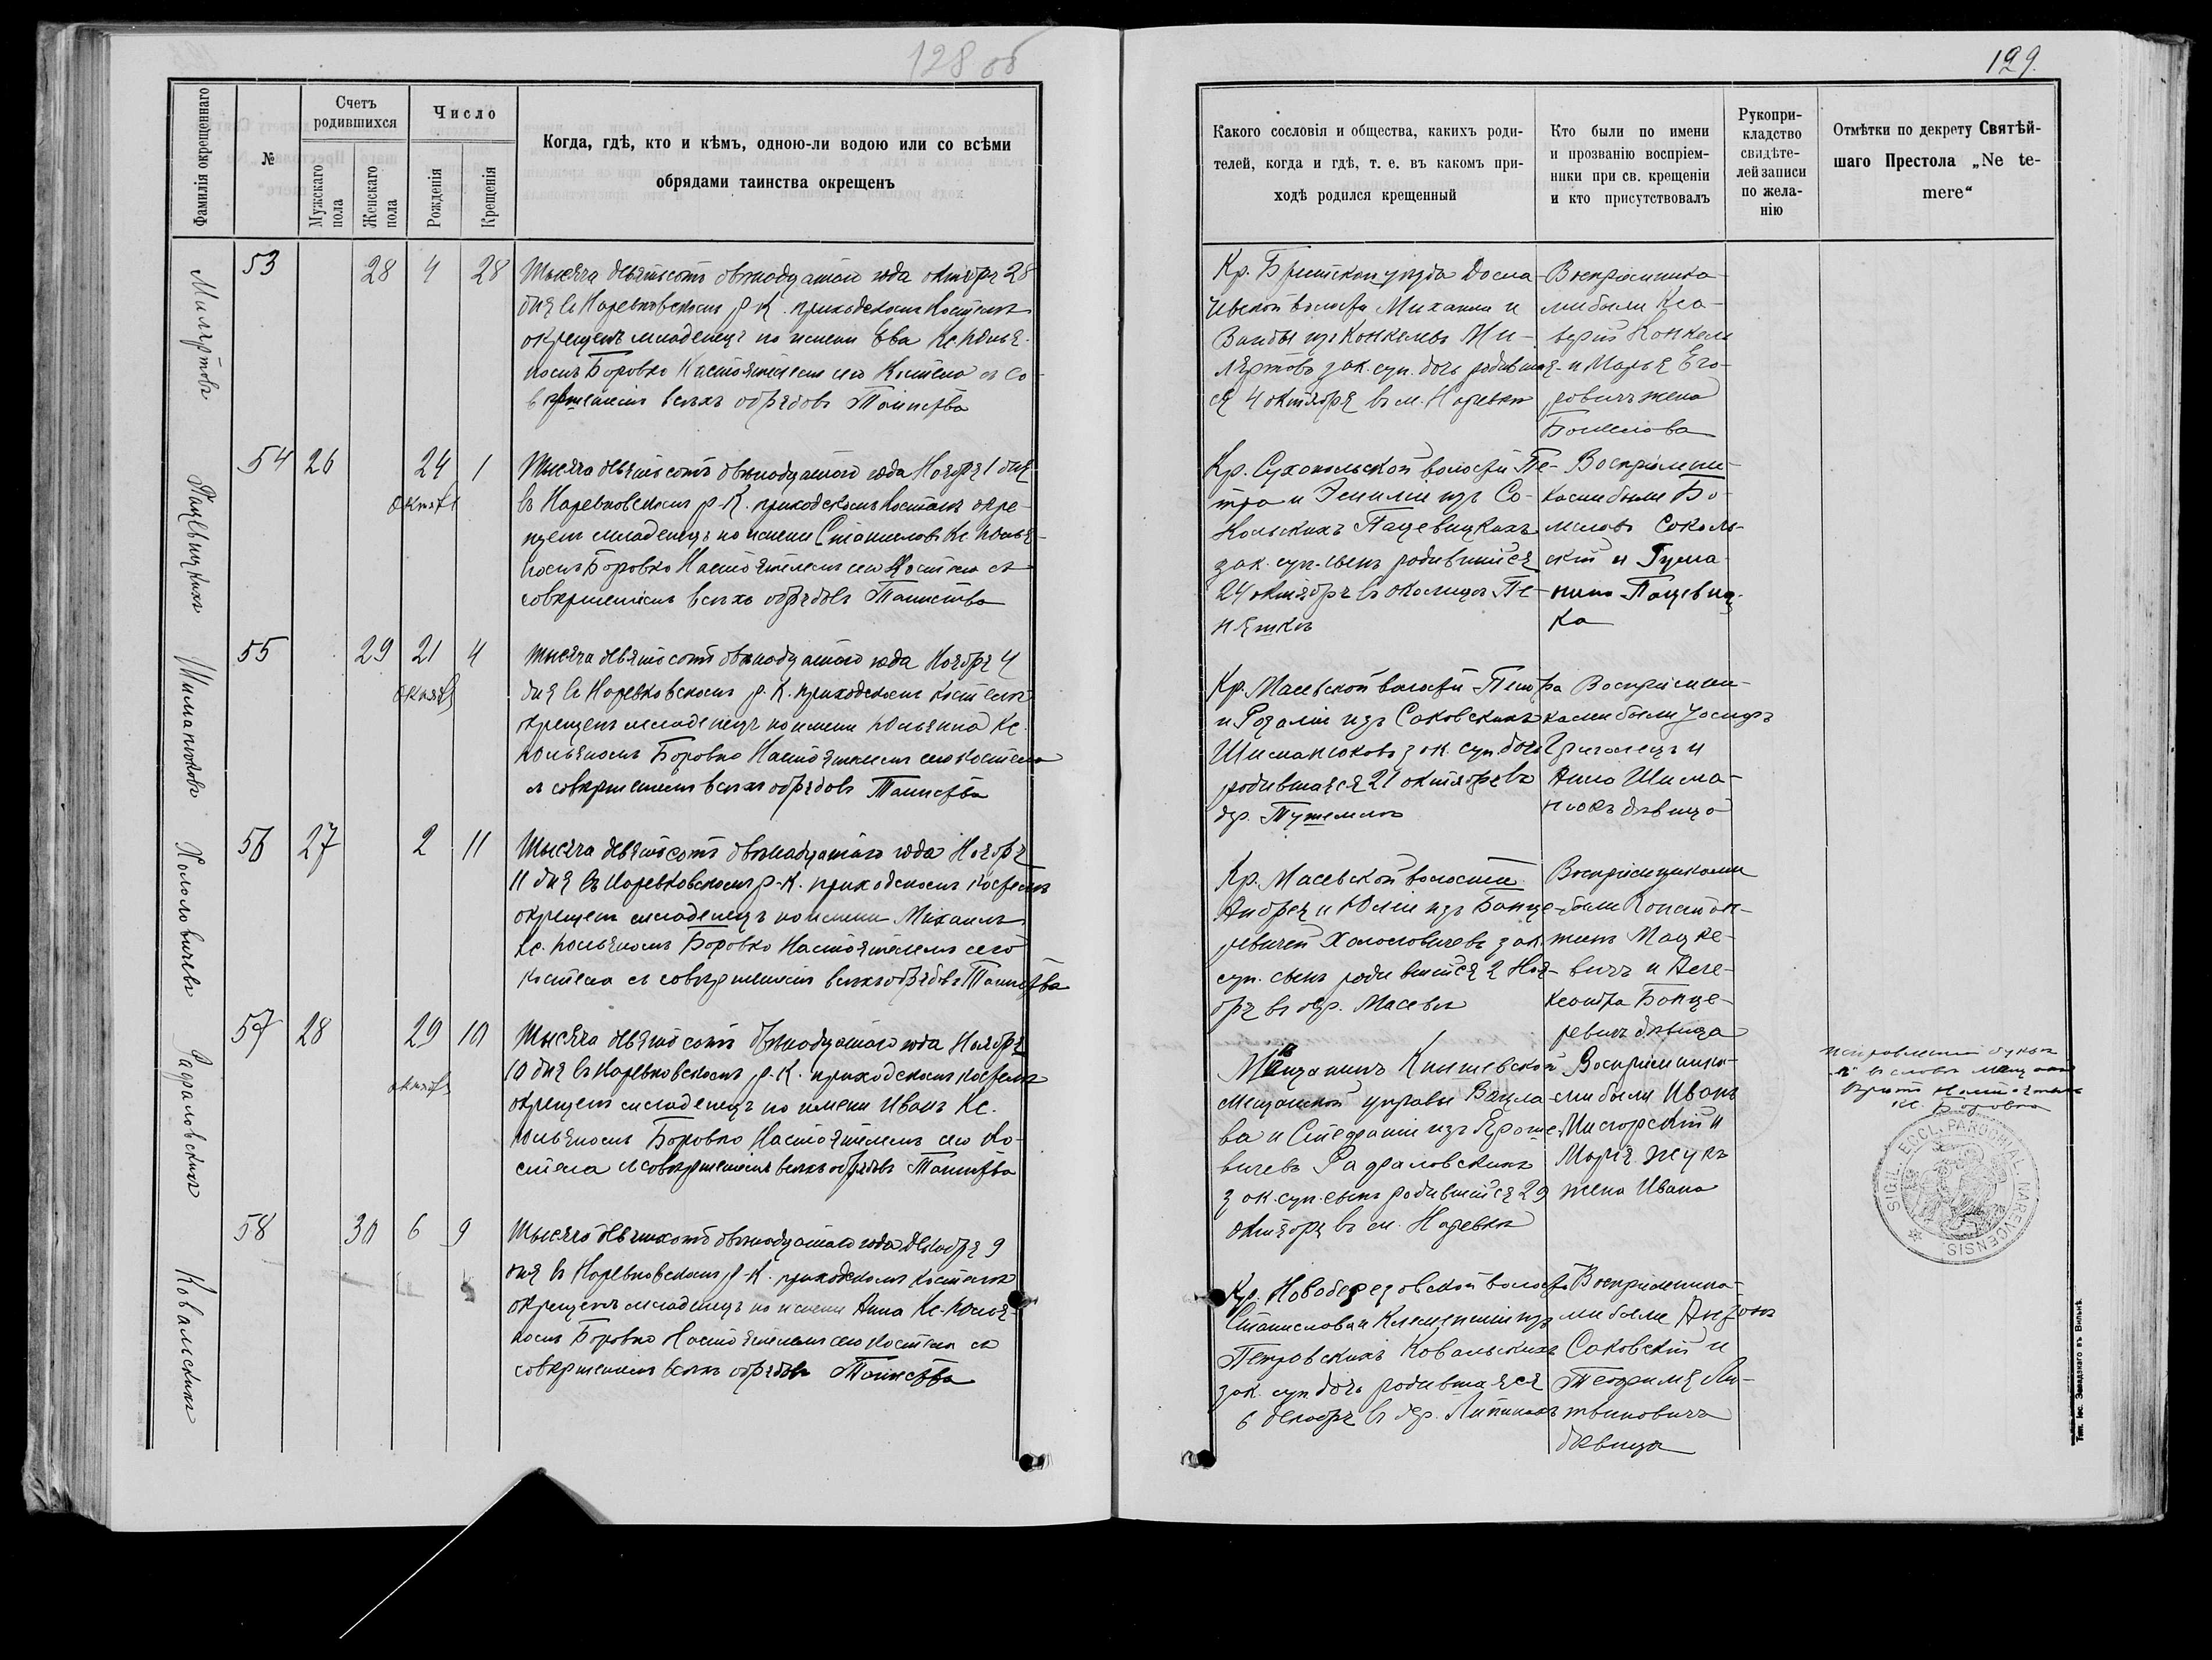 128 об
Фамилія окрещеннаго
№
Счетъ родившихся
Мужскаго пола
Женскаго пола
Число
Рожденія
Крещенія
Когда, гдѣ, кто и кѣмъ, одною-ли водою или со всѣми
обрядами таинства окрещенъ
53
28 4 28
Тысяча девятьсотъ двѣнадцатаго года октября 28
дня въ Наревковскомъ р-К. приходскомъ Костелѣ
окрещенъ младенецъ по имени Ева Кс. Юлья-
номъ Боровко Настоятелемъ сего Костела съ со-
вершеніемъ всѣхъ обрядовъ Таинства
Пацевицкихъ
54 26 24 1
октяб
Тысяча девятьсотъ двѣнадцатаго года Ноября 1 дня
въ Наревковскомъ р-К. приходскомъ Костелѣ окре-
щенъ младенецъ по имени Станиславъ Кс Юлья-
номъ Боровко Настоятелемъ сего Костела съ
совершеніемъ всѣхъ обрядовъ Таинства
Шиманюковъ
55 29 21 4
октяб
тысяча девятьсотъ двѣнадцатаго года Ноября 4
дня въ Наревковскомъ р. К. приходскомъ костелѣ
окрещенъ младенецъ по имени Юльянна Кс.
Юльяномъ Боровко Настоятелемъ сего костела
съ совершеніемъ всѣхъ обрядовъ Таинства
Хололовичевъ
56 27 2 11
Тысяча девятьсотъ двѣнадцатаго года Ноября
11 дня въ Наревковскомъ р-К. приходскомъ костелѣ
окрещенъ младенецъ по имени Михаилъ
Кс. Юльяномъ Боровко Настоятелемъ сего
костела съ совершеніемъ всѣхъ обрядовъ Таинства
57 28 29 10
октяб
Тысяча девятьсотъ двѣнадцатаго года Ноября
10 дня въ Наревковскомъ р-К. приходскомъ костелѣ
окрещенъ младенецъ по имени Иванъ Кс.
Юльяномъ Боровко Настоятелемъ сего Ко-
стела съ совершеніемъ всѣхъ обрядовъ Таинства
Ковальскихъ
58 30 6 9
Тысяча девятьсотъ двѣнадцатаго года декабря 9
дня въ Наревковскомъ р-К. приходскомъ костелѣ
окрещенъ младенецъ по имени Анна Кс. Юлья-
номъ Боровко Настоятелемъ сего костела съ
совершеніемъ всѣхъ обрядовъ Таинства
129.
Какого сословія и общества, какихъ роди-
телей, когда и гдѣ, т. е. въ какомъ при-
ходѣ родился крещенный
Кто были по имени
и прозванію воспріем-
ники при св. крещеніи
и кто присутствовалъ
Рукопри-
кладство
свидѣте-
лей записи
по жела-
нію
Отмѣтки по декрету Святѣй-
шаго Престола „Ne te-
mere“
Кр. уѣзда
волости Михаила и
Ванды изъ Конкелевъ Ми-
зак. суп. дочь родивша-
ся 4 октября въ м. Наревкѣ
Воспріемника-
ми были Кса-
верій Конкель
и Марья Его-
ровичъ жена
Болеслава
Кр. Сухопольской волости Пе-
тра и Эмиліи изъ Со-
кольскихъ Пацевицкихъ
зак. суп. сынъ родившійся
24 октября въ околицѣ
Воспріемни-
ками были Бо-
леславъ Соколь-
скій и
Пацевиц-
ка
Кр. Масевской волости Петра
и Розаліи изъ Саковскихъ
Шиманюковъ зак. суп. дочь
родившаяся 21 октября въ
дер.
Воспріемни-
ками были Іосифъ
и
Анна Шима-
нюкъ дѣвица
Кр. Масевской волости
Андрея и Юліи изъ Банце-
ревичей Хололовичевъ зак.
суп. сынъ родившійся 2 Ноя-
бря въ дер. Масевѣ
Воспріемниками
были Констан-
тинъ Мацке-
вичъ и Але-
ксандра Банце-
ревичъ дѣвица
Мѣщанинъ
мещанской управы Вацла-
ва и Стефаніи изъ Яроше-
вичевъ
зак. суп. сынъ родившійся 29
октября въ м. Наревкѣ
Воспріемника-
ми были Иванъ
и
Марія Жукъ
жена Ивана
Настоятель
Кс Боровко
SIGIL. ECCL. PAROCHIAL. NAREVCENSIS.
Кр. Новоберезовской волости
Станислава и Клементіи изъ
Петровскихъ Ковальскихъ
зак. суп дочь родившаяся
6 декабря въ дер.
Воспріемника-
ми были Антонъ
Саковскій и
Теофиля Ли-
твиновичъ
дѣвица
Тип. Іос. Завадзкаго въ Вильнѣ.